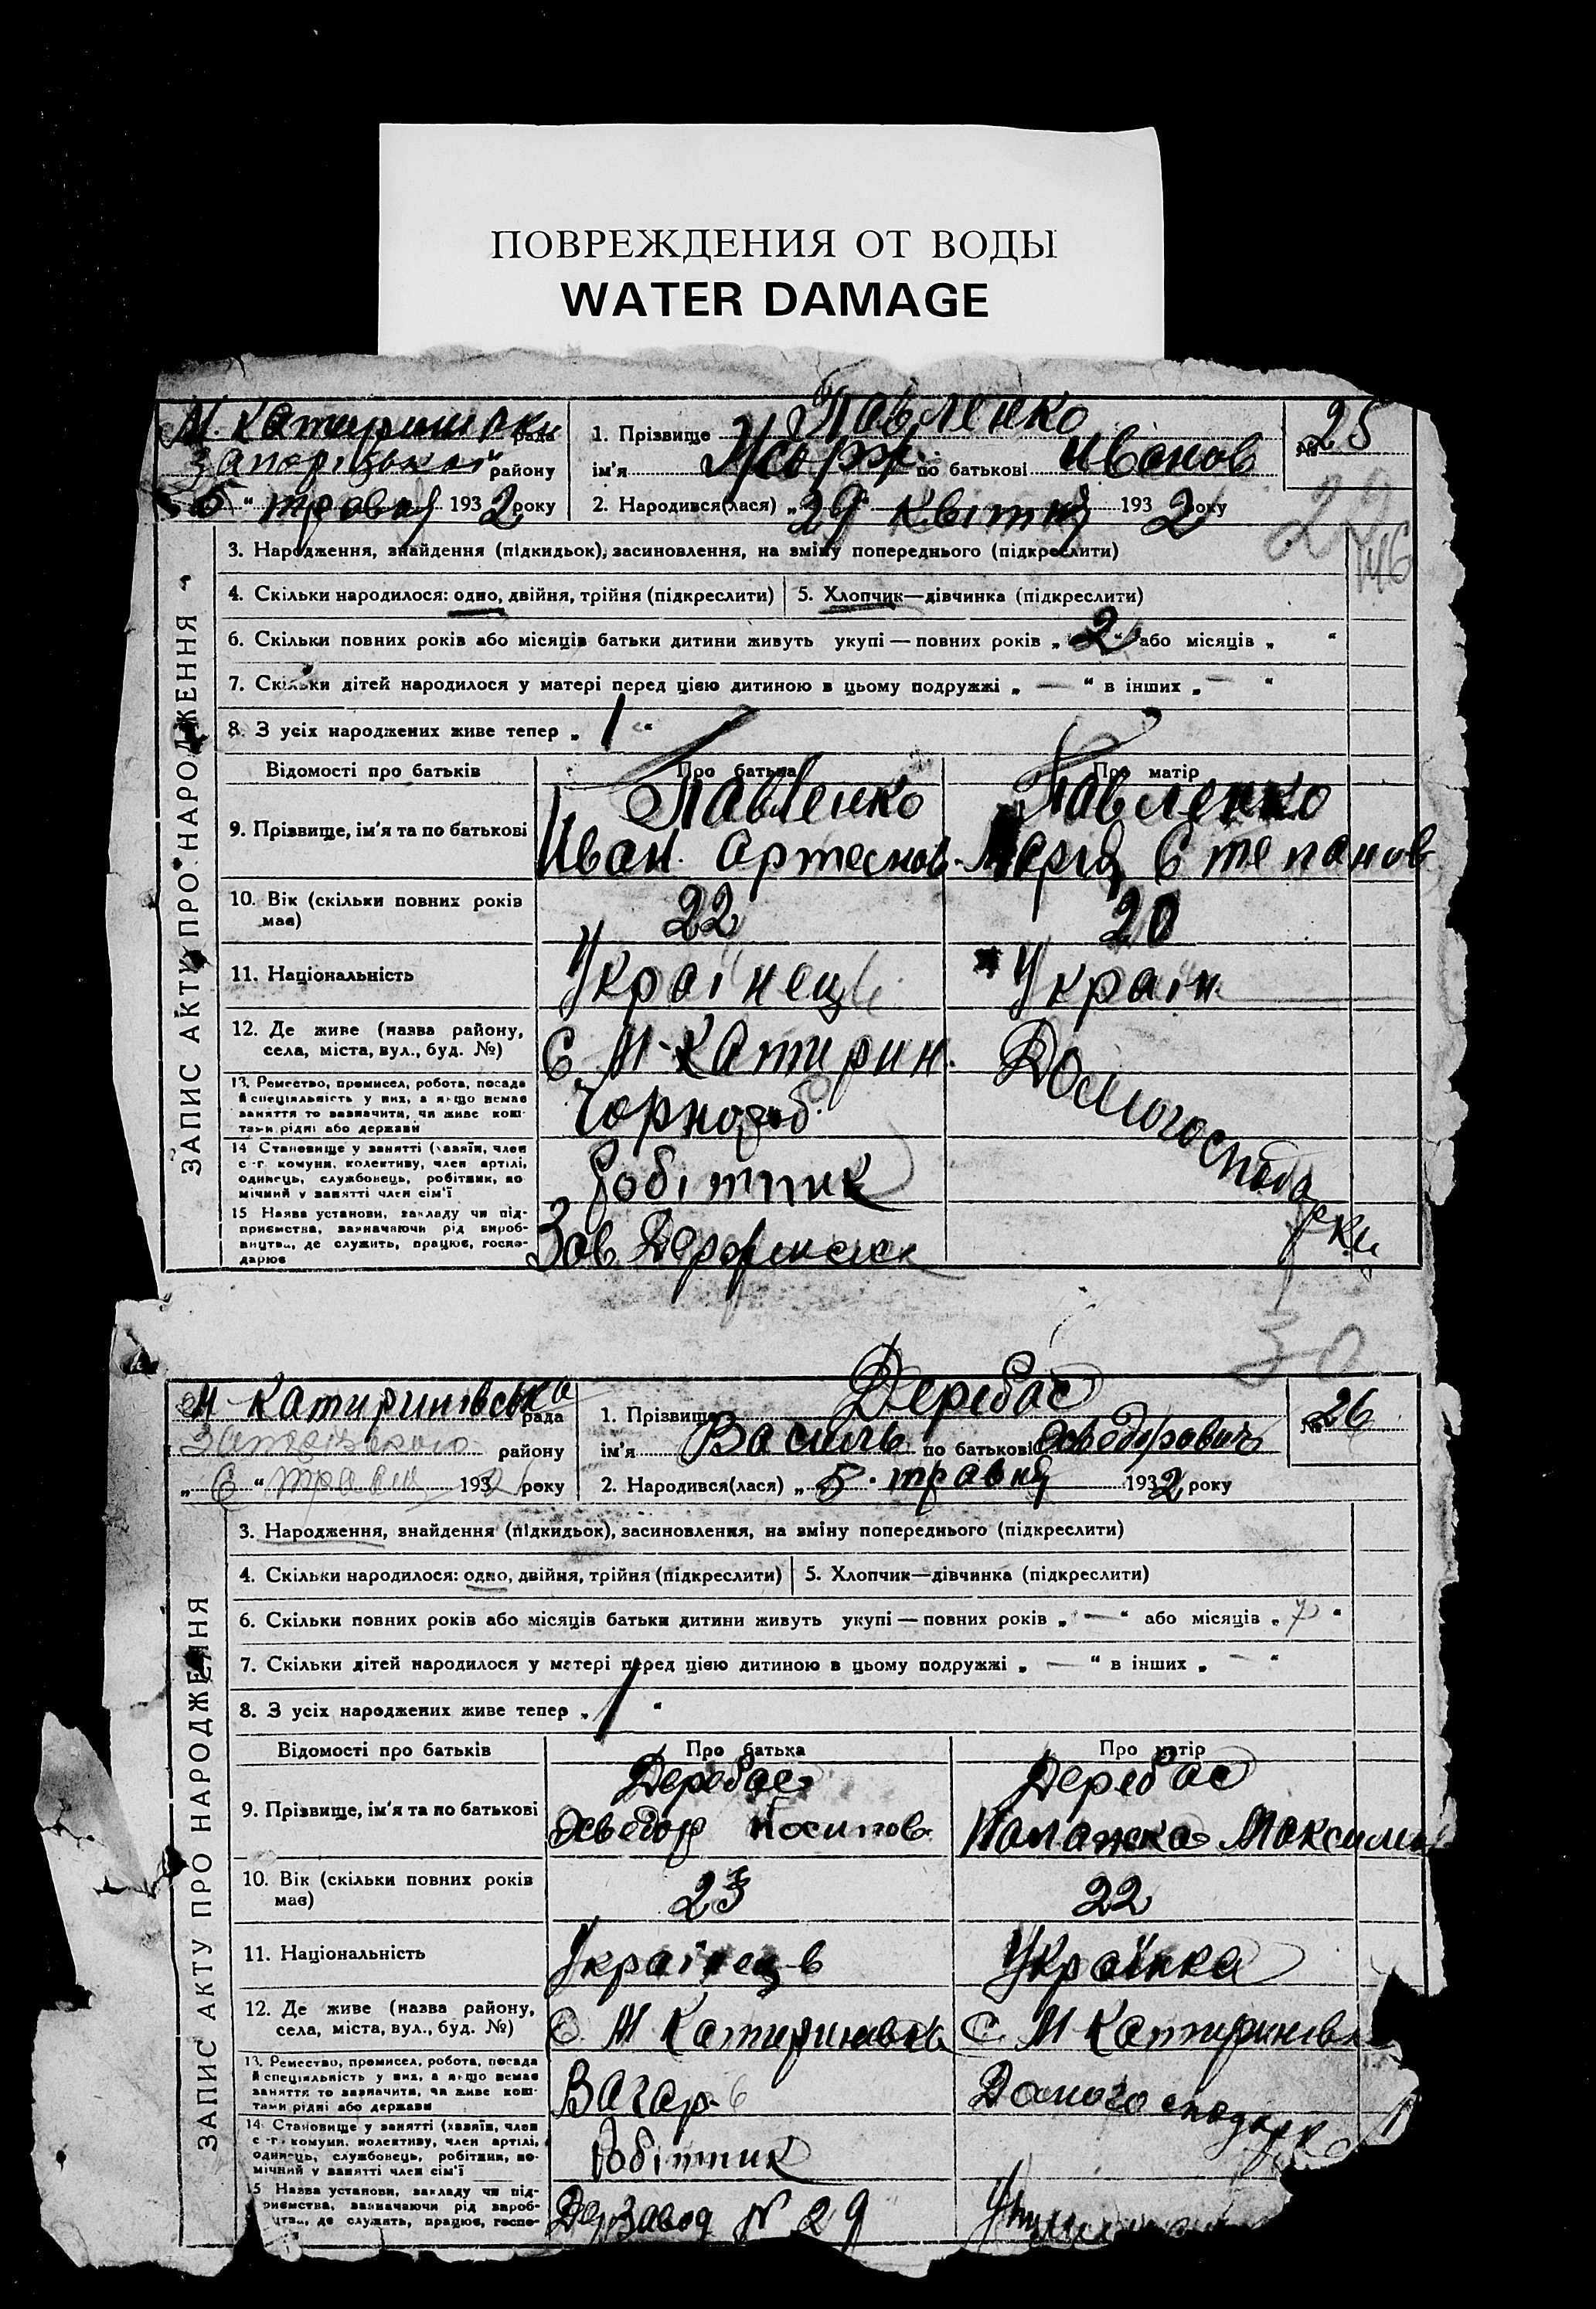 ПОВРЕЖДЕНИЯ ОТ ВОДЫ
WATER DAMAGE
М. рада
Запорізької району
5 " травня 1932 року
1. Прізвище Павленко
ім'я Жорж по батькові Иванов
2. Народився(лася) „29" Квітня 1932 року
№ 25
29
146
ЗАПИС АКТУ ПРО НАРОДЖЕННЯ
3. Народження, знайдення (підкидьок), засиновлення, на зміну попереднього (підкреслити)
4. Скільки народилося: одно, двійня, трійня (підкреслити)
5. Хлопчик—дівчинка (підкреслити)
6. Скільки повних років або місяців батьки дитини живуть укупі — повних років „ 2 " або місяців „ "
7. Скільки дітей народилося у матері перед цією дитиною в цьому подружжі „ — " в інших „ — "
8. З усіх народжених живе тепер „ 1 "
Відомості про батьків
Про батька
Про матір
9. Прізвище, ім'я та по батькові
Павленко
Иван.
Павленко
Марія Степанов
10. Вік (скільки повних років має)
22
20
11. Національність
Українець
Україн
12. Де живе (назва району, села, міста, вул., буд. №)
С М-Катирин.
Домогосподарки
13. Ремество, промисел, робота, посада
й спеціяльність у них, а якщо немає
заняття то зазначити, чи живе кош-
тами рідні або держави
Чорнороб.
14 Становище у занятті (хазяїн, член
с.-г. комуни, колективу, член артілі,
одинець, службовець, робітник, по-
мічний у занятті член сім'ї
Робітник
15 Назва установи, закладу чи під-
приємства, зазначаючи рід вироб-
ництв., де служить, працює, госпо-
дарює
Зав.
30
М Катиринівська рада
району
„ 6 " травня 1932 року
1. Прізвище Деребас
ім'я Василь по батькові Хведорович
2. Народився(лася) „ 5 " травня 1932 року
№ 26
ЗАПИС АКТУ ПРО НАРОДЖЕННЯ
3. Народження, знайдення (підкидьок), засиновлення, на зміну попереднього (підкреслити)
4. Скільки народилося: одно, двійня, трійня (підкреслити)
5. Хлопчик—дівчинка (підкреслити)
6. Скільки повних років або місяців батьки дитини живуть укупі — повних років „ — " або місяців „ 7 "
7. Скільки дітей народилося у матері перед цією дитиною в цьому подружжі „ — " в інших „ — "
8. З усіх народжених живе тепер „ 1 "
Відомості про батьків
Про батька
Про матір
9. Прізвище, ім'я та по батькові
Деребас
Хведор Йосипов
Деребас
Палажка Максимов
10. Вік (скільки повних років має)
23
22
11. Національність
Українець
Українка
12. Де живе (назва району, села, міста, вул., буд. №)
С. М Катиринівка
С. М Катиринівка
13. Ремество, промисел, робота, посада
й спеціяльність у них, а якщо немає
заняття то зазначити, чи живе кош-
тами рідні або держави
Вагар
Домогосподарка
14. Становище у занятті (хазяїн, член
с.-г. комуни, колективу, член артілі,
одинець, службовець, робітник, по-
мічний у занятті член сім'ї
Робітник
15 Назва установи, закладу чи під-
приємства, зазначаючи рід вироб-
ництв., де служить, працює, госпо-
Держзавод № 29